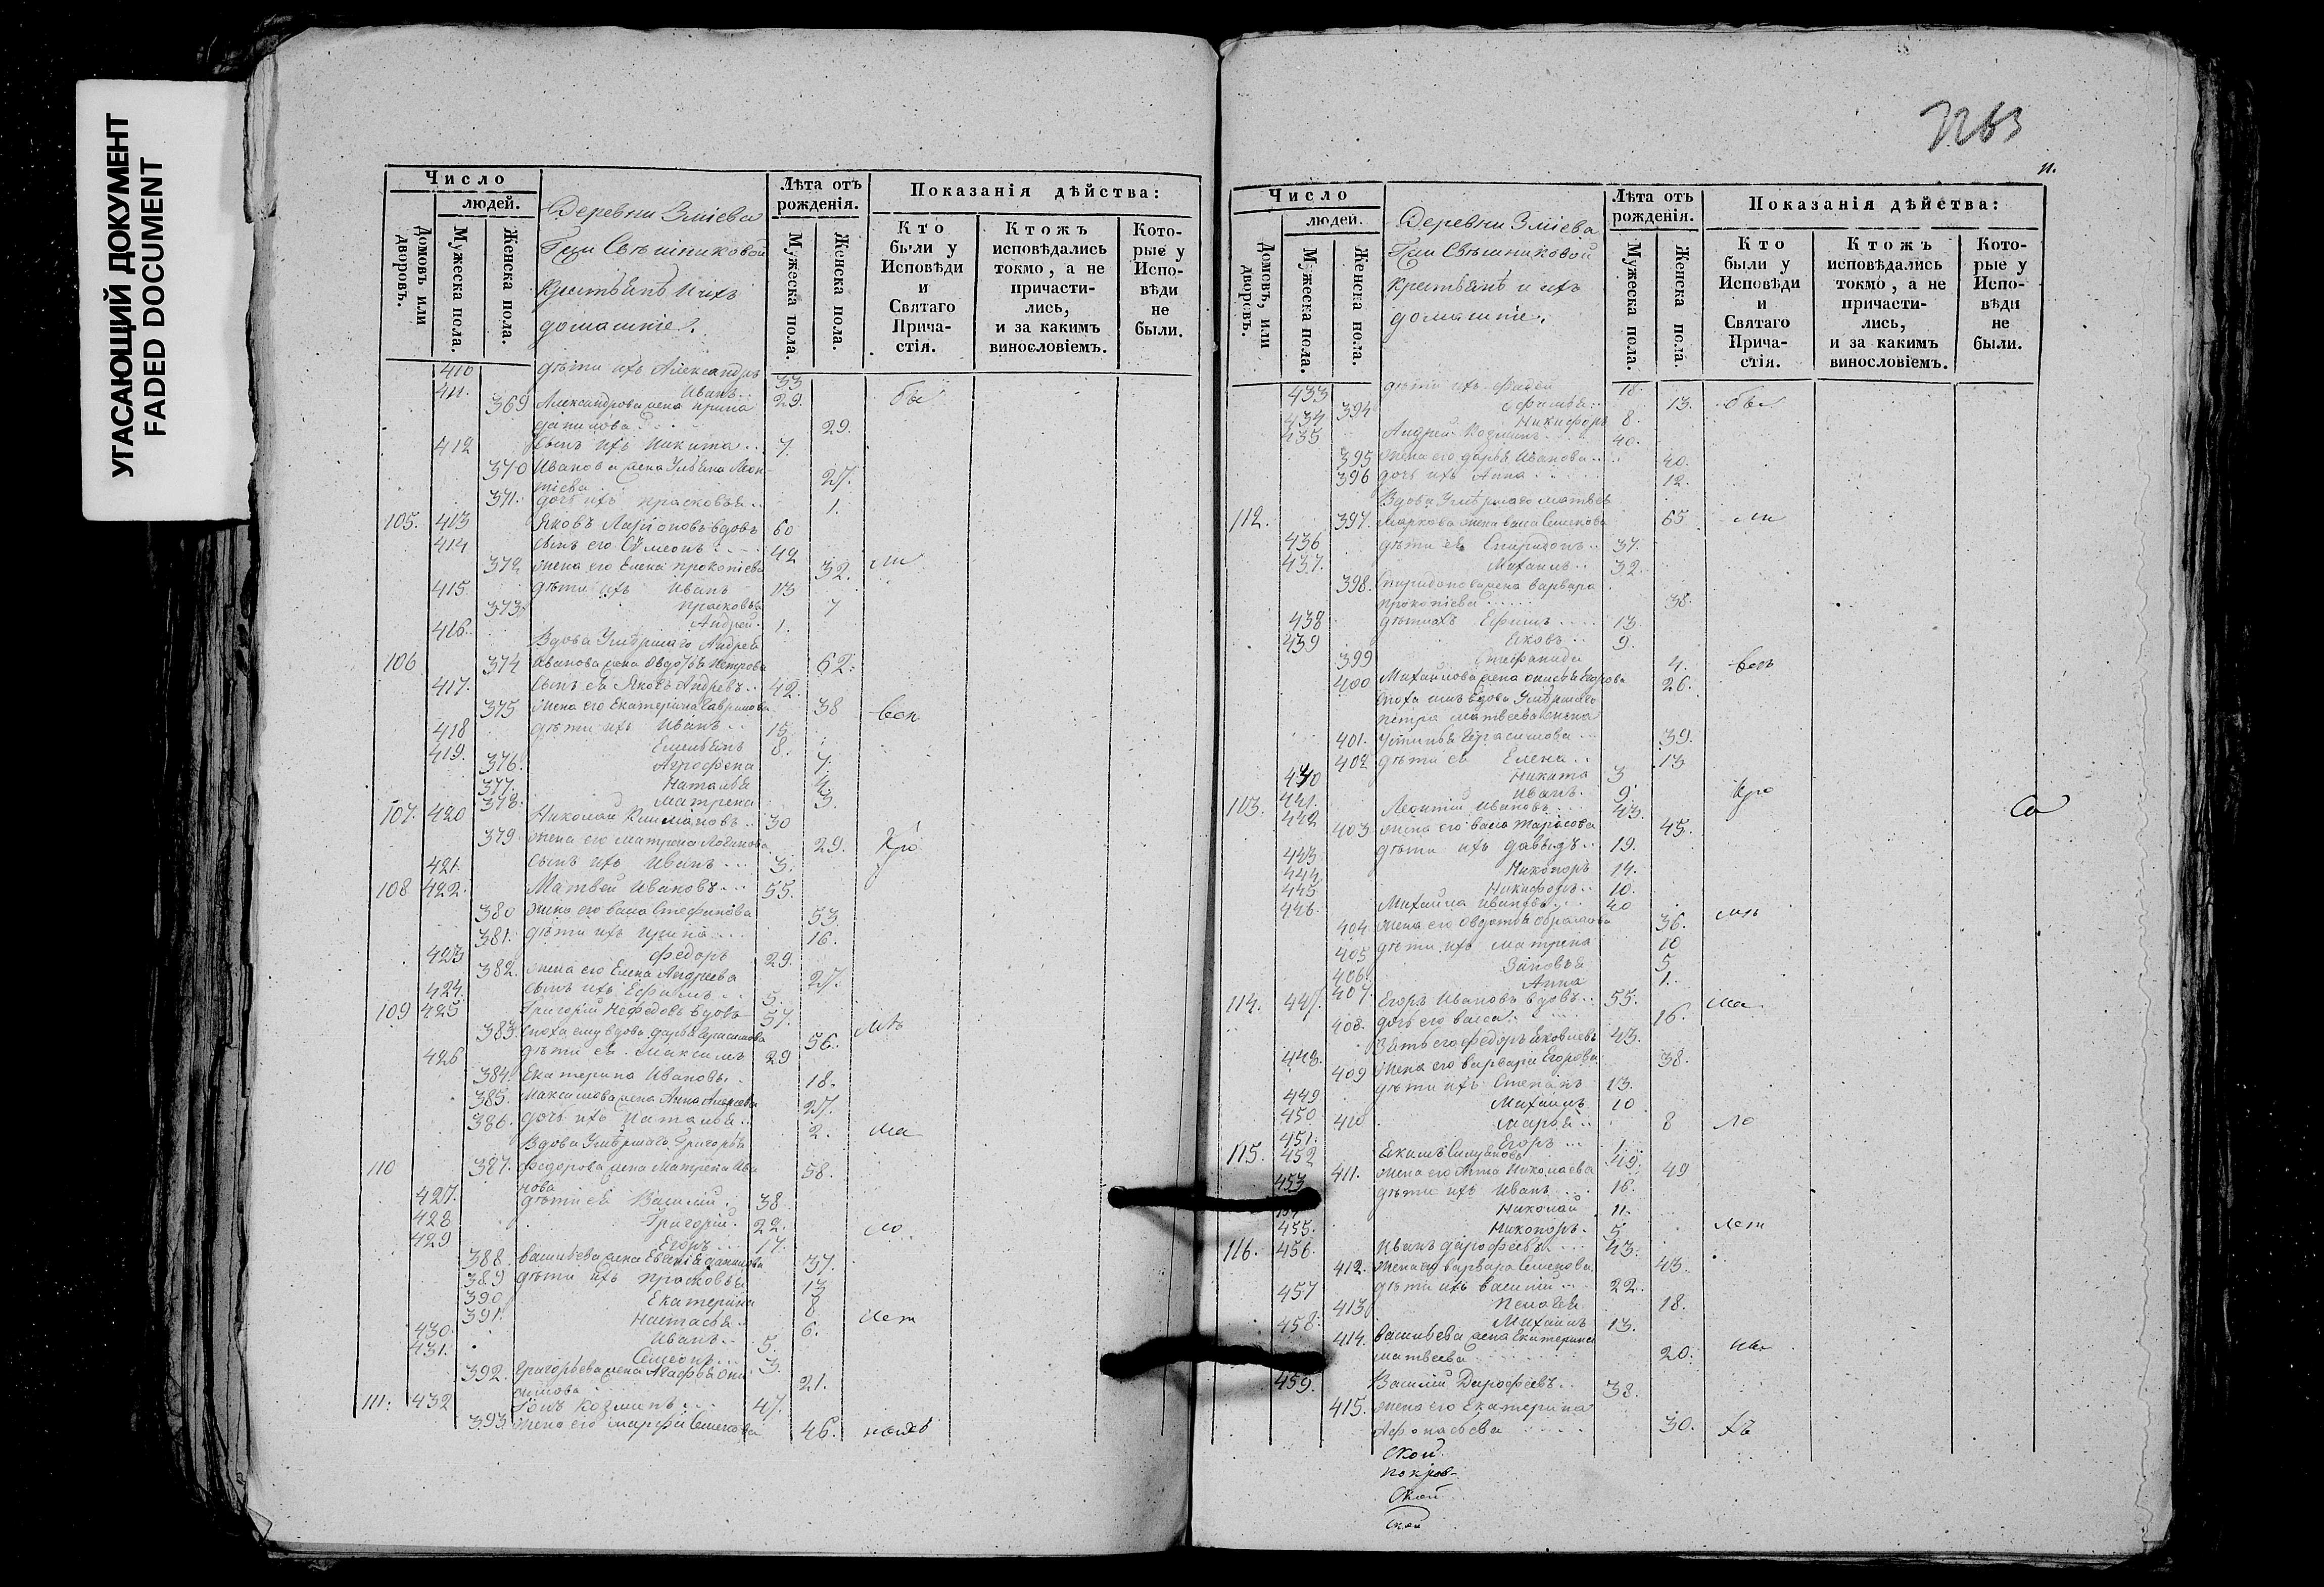 УГАСАЮЩИЙ ДОКУМЕНТ
FADED DOCUMENT
Число
людей.
Домовъ или дворовъ.
Мужеска пола.
Женска пола.
Деревни Зміева
Гжи Свѣшниковой
крестьянѣ и ихъ
домашніе.
Лѣта отъ рожденія.
Мужеска пола.
Женска пола.
Показанія дѣйства:
Кто были у Исповѣди и Святаго Причастія.
Ктожъ исповѣдались токмо, а не причастились, и за какимъ винословіемъ.
Которые у Исповѣди не были.
410 дѣти ихъ Александръ 33
411. Иванъ 29.
369 Александрова жена Ирина
данилова 29.
412 сынъ ихъ Никита 7.
370 Иванова жена Ульяна Леон-
тіева 27.
371. дочь ихъ Прасковья 1.
105. 413 Яковъ Ларіоновъ вдовъ 60
414 сынъ его Сѵмеонъ 42
372 жена его Елена Прокопіева 32.
415 дѣти ихъ Иванъ 13
373. Прасковья 7
416. Андрей 1.
Вдова Умѣршаго Андрея
106 374 Иванова жена Овдотья Петрова 62.
417. сынъ ея Яковъ Андревъ 42.
375 жена его Екатерина Гаврилова 38
418 дѣти ихъ Иванъ 15
419. Емельянъ 8.
376. Агрофена 7.
377. Наталья 4.
378. Матрена 3.
107. 420 Николай Климановъ 30
379. жена его Матрена Логинова 29.
421. сынъ ихъ Иванъ 3.
108 422. Матвей Ивановъ 55.
380 жена его Васа Стефанова 53.
381. дѣти ихъ Ирина 16.
423 Федоръ 29.
382. жена его Елена Андреева 27.
424. сынъ ихъ Ефимъ 5.
109 425 Григорій Нефедовъ вдовъ 57.
383. сноха ему вдова Дарья Герасимова 56.
426 дѣти ея Максимъ 29
384. Екатерина Иванова 18.
385. Максимова жена Анна Андреева 27.
386. дочь ихъ Наталья 2.
Вдова Умѣршаго Григорья
110 387. Федорова жена Матрена Ива
нова 58.
427. дѣти ея Василій 38
428 Григорій 22.
429 Егоръ 17.
388. Васильева жена Евгенія данилова 37.
389 дѣти ихъ Прасковья 13
390 Екатерина 8
391. Настасья 6.
430. Иванъ 5.
431. Семеонъ 3.
392. Григорьева жена Агафья Они
симова 21.
111. 432 Козминъ 47.
393 жена его Марфа Семенова 46.
Число
людей.
Домовъ, или дворовъ.
Мужеска пола.
Женска пола.
Деревни Зміева
Гжи Свѣшниковой
крестьянѣ и ихъ
домашніе.
Лѣта отъ рожденія.
Мужеска пола.
Женска пола.
Показанія дѣйства:
Кто были у Исповѣди и Святаго Причастія.
Ктожъ исповѣдались токмо, а не причастились, и за какимъ винословіемъ.
Которые у Исповѣди не были.
433 дѣти ихъ Фадей 18.
394 Офимья 13.
434 Никифоръ 8.
435 Андрей Козминъ 40.
395 жена его дарья Иванова 40.
396 дочь ихъ Анна 12.
Вдова Умѣршаго Матвея
112. 397. Маркова жена Васа Семенова 65
436 дѣти ея Спиридонъ 37.
437. Михаилъ 32.
398. Спиридонова жена Варвара
Прокопіева 38.
438 дѣти ихъ Ефимъ 13.
439 Яковъ 9.
399 Стефанида 4.
400 Михайлова жена Егорова 26.
сноха имъ вдова Умѣршаго
Петра Матвеева жена
401. Устинья Герасимова 39.
402 дѣти ея Елена 13
440 Никита 3
441. Иванъ 9.
113. 442 Леонтій Ивановъ 43.
403 жена его Васа Тарасова 45.
443 дѣти ихъ давыдъ 19.
444 Никоноръ 14.
445 Никифоръ 10.
446. Михайла Ивановъ 40
404 жена его Овдотья Абрамова 36.
405 дѣти ихъ Матрена 10
406. Зиновья 5
407. Анна 1.
114. 447. Егоръ Ивановъ вдовъ 55.
408. дочь его Васса 16.
448. Зять его Федоръ Яковлевъ 43.
409 жена его Варвара Егорова 38.
449 дѣти ихъ Степанъ 13.
450 Михаилъ 10
410 Марья 8
451. Егоръ 1.
115. 452 Екимъ 49.
411. жена его Анна Николаева 49
453 дѣти ихъ Иванъ 16.
Николай 11.
455. Никоноръ 5
116. 456. Иванъ дарофеевъ 43.
412. жена его Варвара Семенова 43.
457 дѣти ихъ Василій 22.
413 Пелагея 18.
458. Михаилъ 13.
414. Васильева жена Екатерина
Матвеева 20.
459. Василій Дарофеевъ 38.
415. жена его Екатерина
Афонасьева 30.
ской
покров-
ской